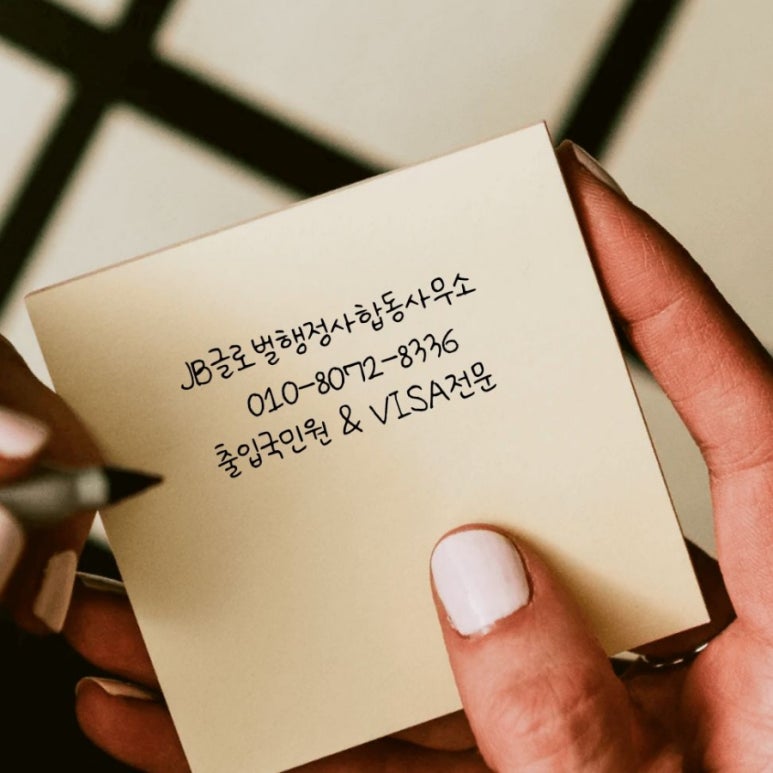 JB글로벌행정사합동사무소
010-8072-8336
출입국민원 & VISA전문